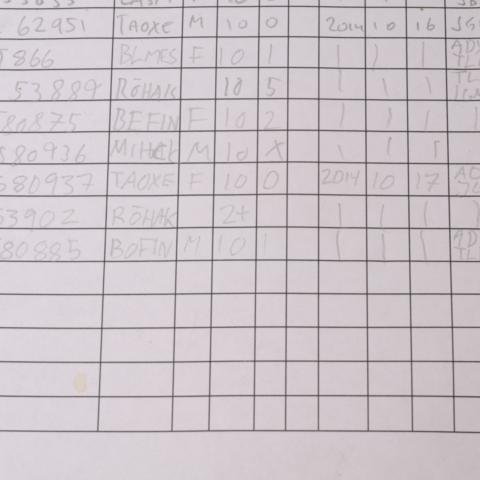 62951 TAOXE M 10 0 2014 10 16
866 BLMES F 10 1 | | |
53889 RÖHAK 10 5 | | |
80875 BEFIN F 10 2 | | |
580936 M 10 X | | |
580937 TAOXE F 10 0 2014 10 17
53902 RÖHAK 2+ | | |
80885 BOFIN M 10 1 | | |